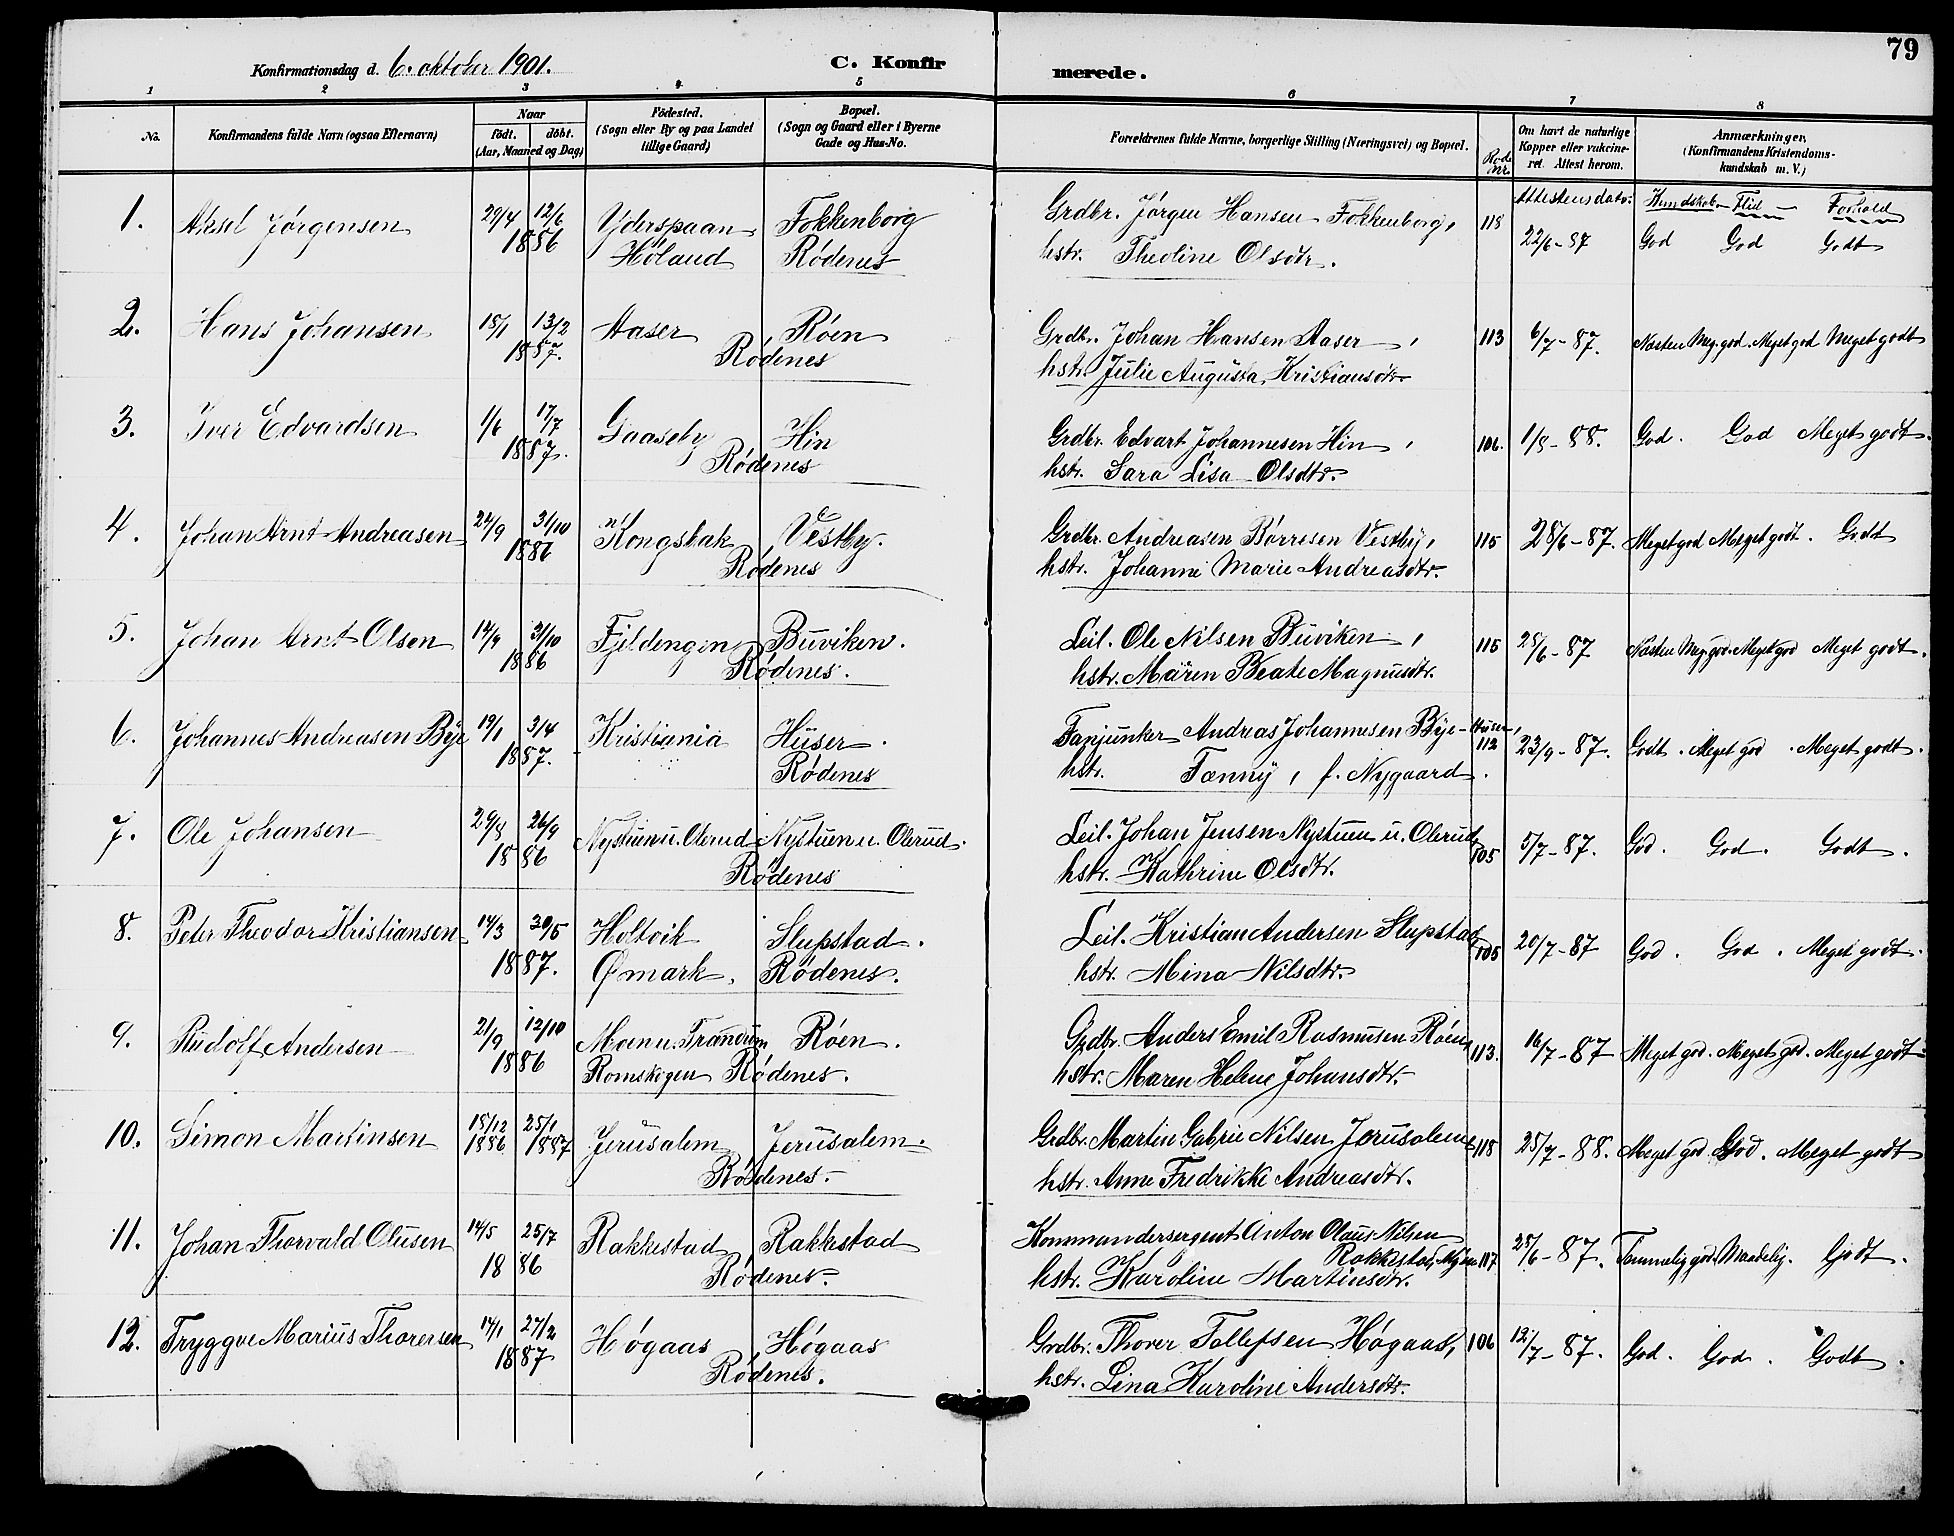 79
Konfirmationsdag d. 6. oktober 1901. C. Konfirmerede.
1 2 3 4 5 6 7 8
No. Konfirmandens fulde Navn (ogsaa Efternavn) Naar født. døbt. (Aar, Maaned og Dag) Fødested. (Sogn eller By og paa Landet tillige Gaard) Bopæl. (Sogn og Gaard eller i Byerne Gade og Hus-No. Forældrenes fulde Navne, borgerlige Stilling (Næringsvei) og Bopæl. Rode nr. Om havt de naturlige Kopper eller vakcineret. Attest herom. Anmærkninger, (Konfirmandens Kristendomskundskab m. V.)
Attestens dato: Kundskab - Flid - Forhold
1. Aksel Jørgensen 29/4 12/6 Yderspaan Fokkenborg Grdbr. Jørgen Hansen Fokkenborg, 118 22/6-87 God God Godt
1886 Høland Rødenes hstr. Theoline Olsdtr.
2. Hans Johansen 15/1 13/2 Aaser Røen Grdbr. Johan Hansen Aaser, 113 6/7-87. Næsten Meg. god. Meget god Meget godt
1887. Rødenes hstr. Julie Augusta Kristiansdtr.
3. Iver Edvardsen 1/6 17/7 Gaaseby Hin Grdbr. Edvart Johannesen Hin, 106. 1/8-88. God. God Meget godt.
1887. Rødenes hstr. Sara Lisa Olsdtr.
4. Johan Arnt Andreasen 24/9 31/10 Kongsbak Vestby. Grdbr. Andreasen Børresen Vestby, 115 28/6-87. Meget god Meget godt. Godt
1886 Rødenes hstr. Johanne Marie Andreasdtr.
5. Johan Arnt Olsen 14/9 31/10 Fjeldengen Buviken. Leil. Ole Nilsen Buviken, 115 28/6-87 Næsten Meg. god. Meget god Meget godt.
1886 Rødenes. hstr. Maren Beate Magnusdtr.
6. Johannes Andreasen Bye 19/1 3/4 Kristiania Huser. Fanjunker Andreas Johannesen Bye-Huser, 112 23/9-87. Godt. Meget god. Meget godt.
1887. Rødenes hstr. Fanny, f. Nygaard.
7. Ole Johansen 29/8 26/9 Nystuen u. Olerud Nystuen u. Olerud. Leil. Johan Jensen Nystuen u. Olerud 105 5/7-87. God. God. Godt.
1886 Rødenes hstr. Kathrine Olsdtr.
8. Peter Theodor Kristiansen 14/3 30/5 Holtvik Slupstad. Leil. Kristian Andersen Slupstad 105 20/7-87 God. God. Meget godt.
1887. Ømark. Rødenes. hstr. Mina Nilsdtr.
9. Rudolf Andersen 2/9 12/10 Moen u. Trandum Røen. Grdbr. Anders Emil Rasmussen Røen, 113. 16/7-87 Meget god. Meget god. Meget godt
1886 Romskogen Rødenes. hstr. Maren Helene Johansdtr.
10. Simon Martinsen 15/12 1886 25/1 1887 Jerusalem Jerusalem. Grdbr. Martin Gabriel Nilsen Jerusalem 118 25/7-88. Meget god God. Meget godt
Rødenes. hstr. Anne Fredrikke Andreasdtr.
11. Johan Thorvald Olusen 14/5 25/7 Rakkestad Rakkestad Kommandersergent Anton Olaus Nilsen Rakkestad 117 28/6-87. Temmelig god. Maadelig. Godt.
1886 Rødenes. hstr. Karoline Martinsdtr.
12. Tryggve Marius Thoresen 14/1 27/2 Høgaas Høgaas Grdbr. Thorer Tollefsen Høgaas, 106 12/7-87. God. God. Godt.
1887 Rødenes. hstr. Lina Karoline Andersdtr.